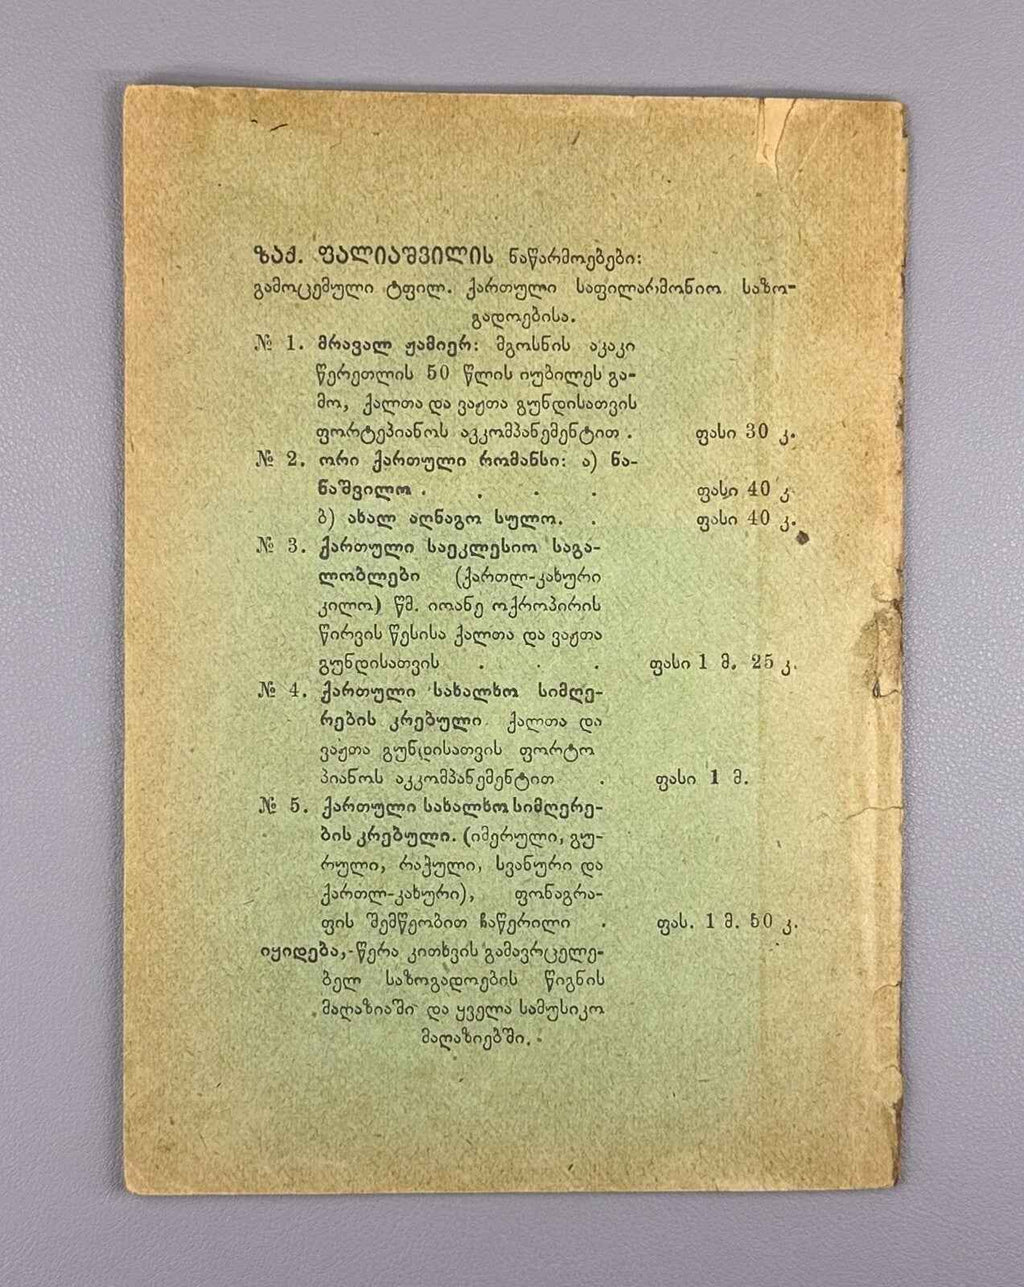 ზაქ. ფალიაშვილის ნაწარმოებები:
გამოცემული ტფილ. ქართული საფილარმონიო საზო-
გადოებისა.
№ 1. მრავალ ჟამიერ: მგოსნის აკაკი
წერეთლის 50 წლის იუბილეს გა-
მო, ქალთა და ვაჟთა გუნდისათვის
ფორტეპიანოს აკკომპანემენტით. ფასი 30 კ.
№ 2. ორი ქართული რომანსი: ა) ნა-
ნაშვილო . . . . ფასი 40 კ.
ბ) ახალ აღნაგო სულო. . ფასი 40 კ.
№ 3. ქართული საეკლესიო საგა-
ლობლები (ქართლ-კახური
კილო) წმ. იოანე ოქროპირის
წირვის წესისა ქალთა და ვაჟთა
გუნდისათვის . . . ფასი 1 მ. 25 კ.
№ 4. ქართული სახალხო სიმღე-
რების კრებული ქალთა და
ვაჟთა გუნდისათვის ფორტო
პიანოს აკკომპანემენტით . ფასი 1 მ.
№ 5. ქართული სახალხო სიმღერე-
ბის კრებული. (იმერული, გუ-
რული, რაჭული, სვანური და
ქართლ-კახური), ფონაგრა-
ფის შემწეობით ჩაწერილი . ფას. 1 მ. 50 კ.
იყიდება,-წერა კითხვის გამავრცელე-
ბელ საზოგადოების წიგნის
მაღაზიაში და ყველა სამუსიკო
მაღაზიებში.